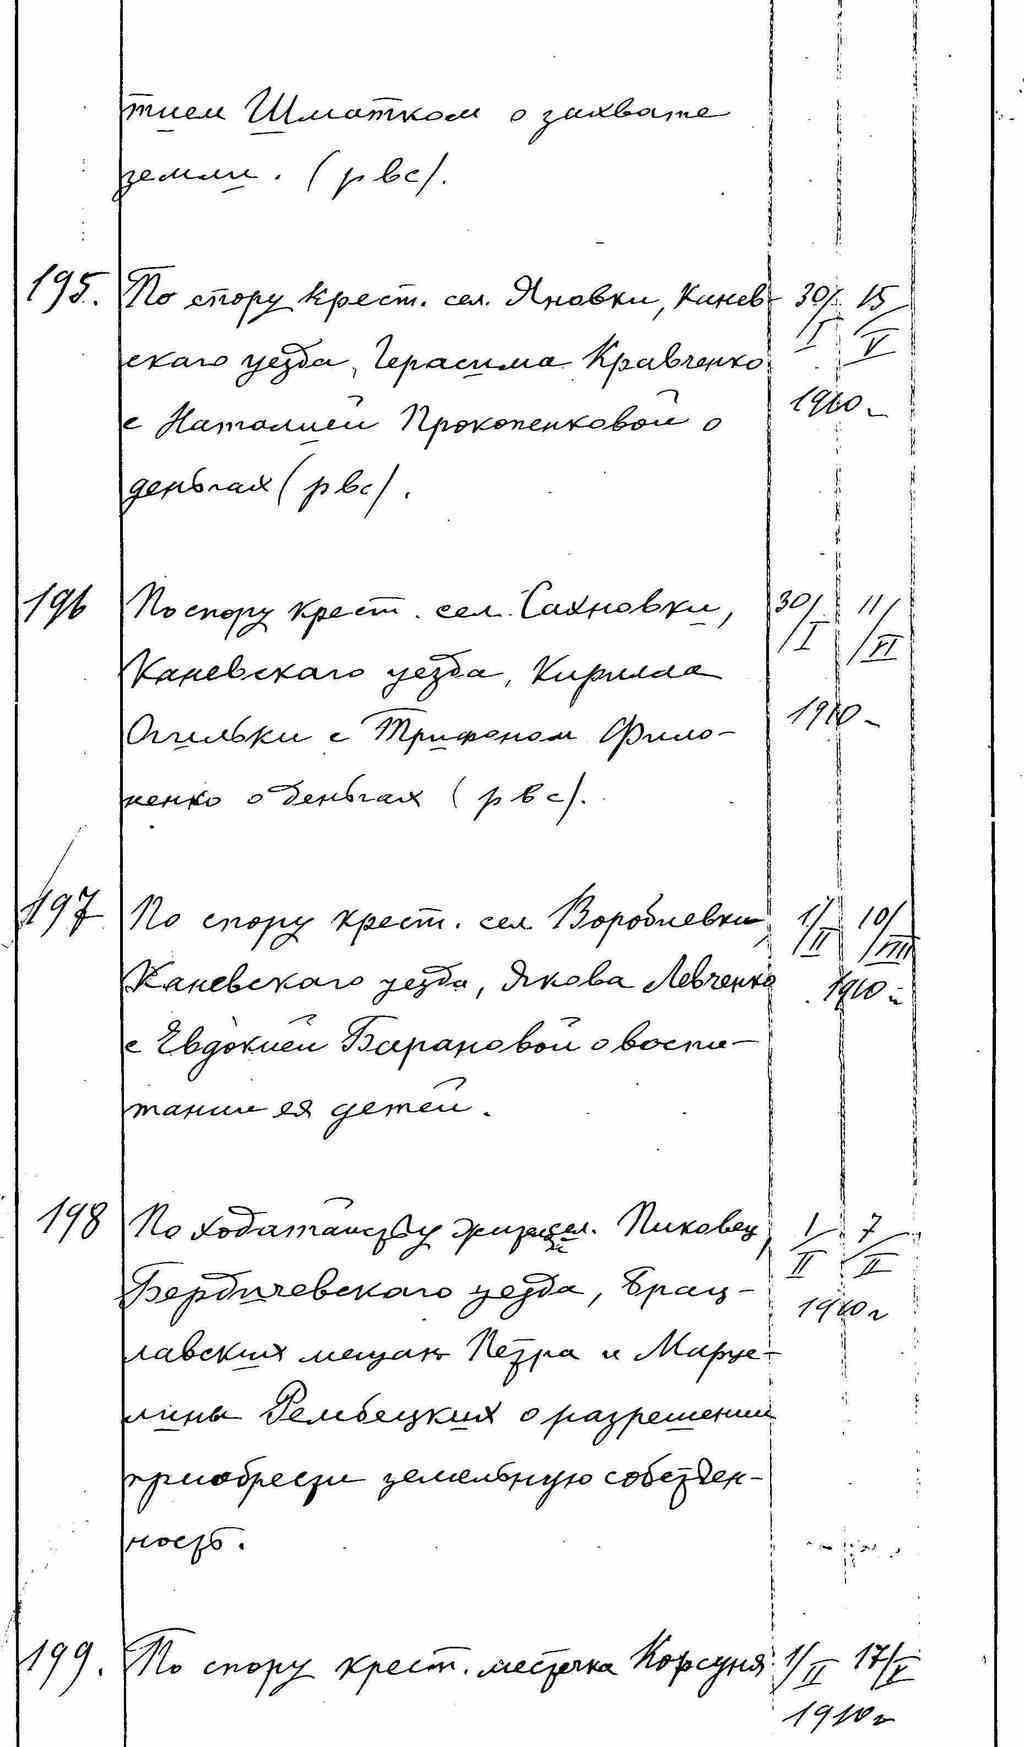 тием Шматком о захвате
земли. (рвс).
195. По спору крест. сел. Яновки, Канев- 30/I 15/V
скаго уезда, Герасима Кравченко
1910 г.
с Наталией Прокопенковой о
деньгах (рвс).
196 По спору крест. сел. Сахновки, 30/I 11/VI
Каневскаго уезда, Кирилла
1910 г.
Огильки с Трифоном Фило-
ненко о деньгах (рвс).
197 По спору крест. сел. Воробиевки, 1/II 10/VIII
Каневскаго уезда, Якова Левченко 1910 г.
с Евдокией Барановой о воспи-
тании ея детей.
198 По ходатайству сел. Пиковец, 1/II 7/II
Бердичевского уезда, Брац- 1910 г
лавских мещан Петра и Марце-
лины Рембецких о разрешении
приобрести земельную собствен-
ность.
199. По спору крест. местечка Корсуня 1/II 17/V
1910 г